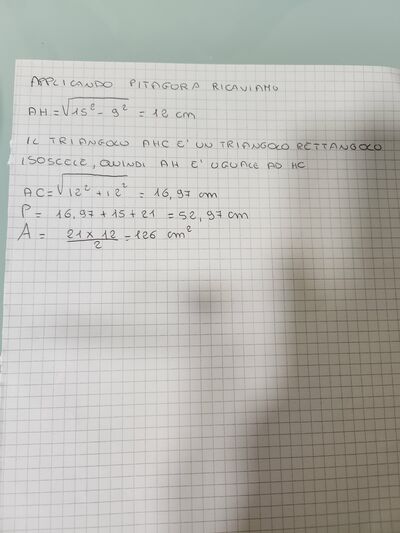 APPLICANDO PITAGORA RICAVIAMO
AH = √15² - 9² = 12 cm
IL TRIANGOLO AHC E' UN TRIANGOLO RETTANGOLO
ISOSCELE, QUINDI AH E' UGUALE AD HC
AC = √12² + 12² = 16,97 cm
P = 16,97 + 15 + 21 = 52,97 cm
A = 21 × 12 / 2 = 126 cm²